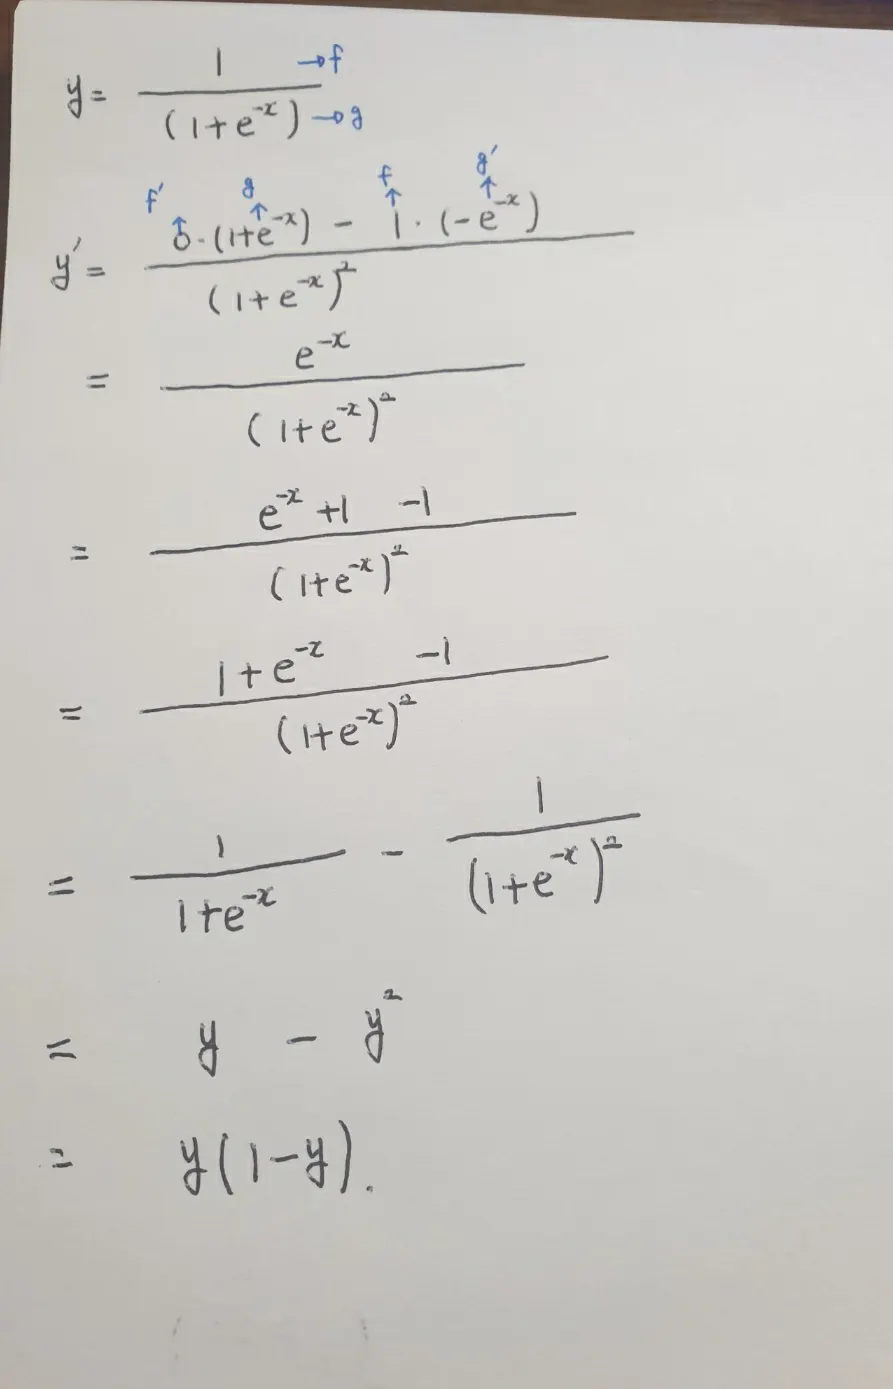 y = 1 / (1+e^-x) →f →g
f' g f g'
y' = 0·(1+e^-x) - 1·(-e^-x) / (1+e^-x)^2
= e^-x / (1+e^-x)^2
= e^-x +1 -1 / (1+e^-x)^2
= 1+e^-x -1 / (1+e^-x)^2
= 1 / 1+e^-x - 1 / (1+e^-x)^2
= y - y^2
= y(1-y).